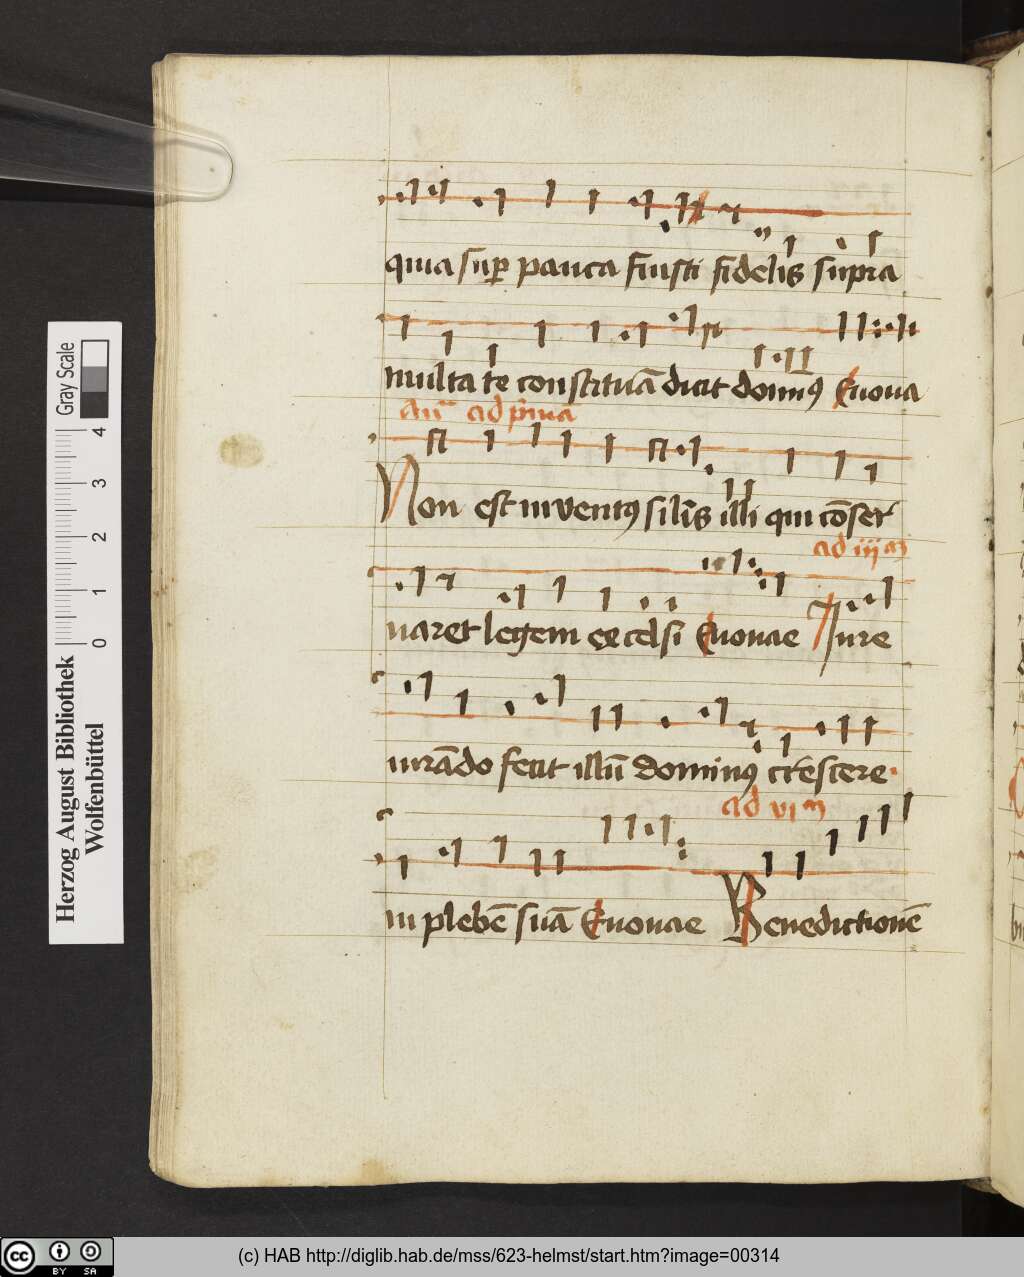 quia sup pauca fuisti fidelis supra
multa te constituā dicit domin9 Euoua
añ ad p̄ma
Non est inventq9 silis illi qui cōser
ad iij m
uaret legem excelsi Euouae Iure
iurādo fecit illū dominq9 crescere
ad vi m
in plebē suā Euouae Benedictionē
Gray Scale
0 1 2 3 4
Herzog August Bibliothek
Wolfenbüttel
cc BY SA
(c) HAB http://diglib.hab.de/mss/623-helmst/start.htm?image=00314